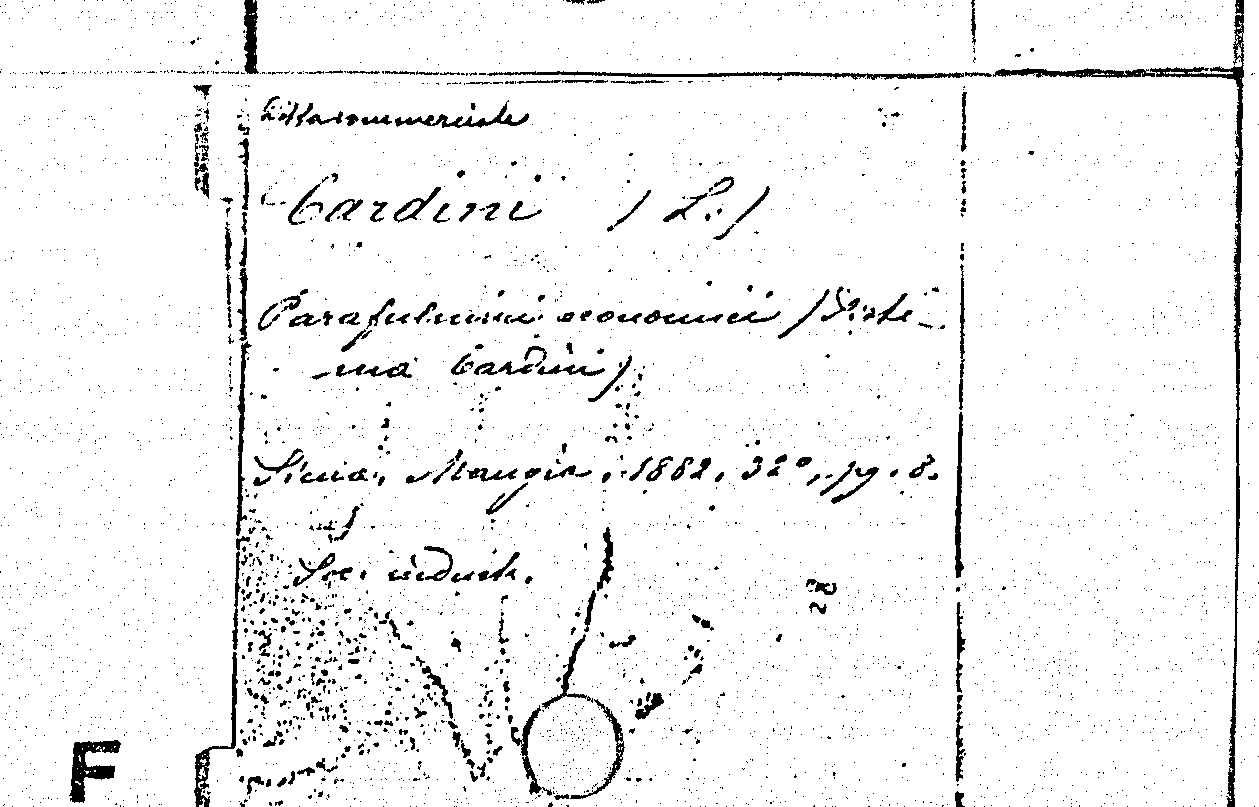 Ditta commerciale
Cardini (L.)
Parafulmini economici (Siste-
-ma Cardini)
Siena, Maugia, 1882, 32°, pg. 8.
Soc. industr.
28
F